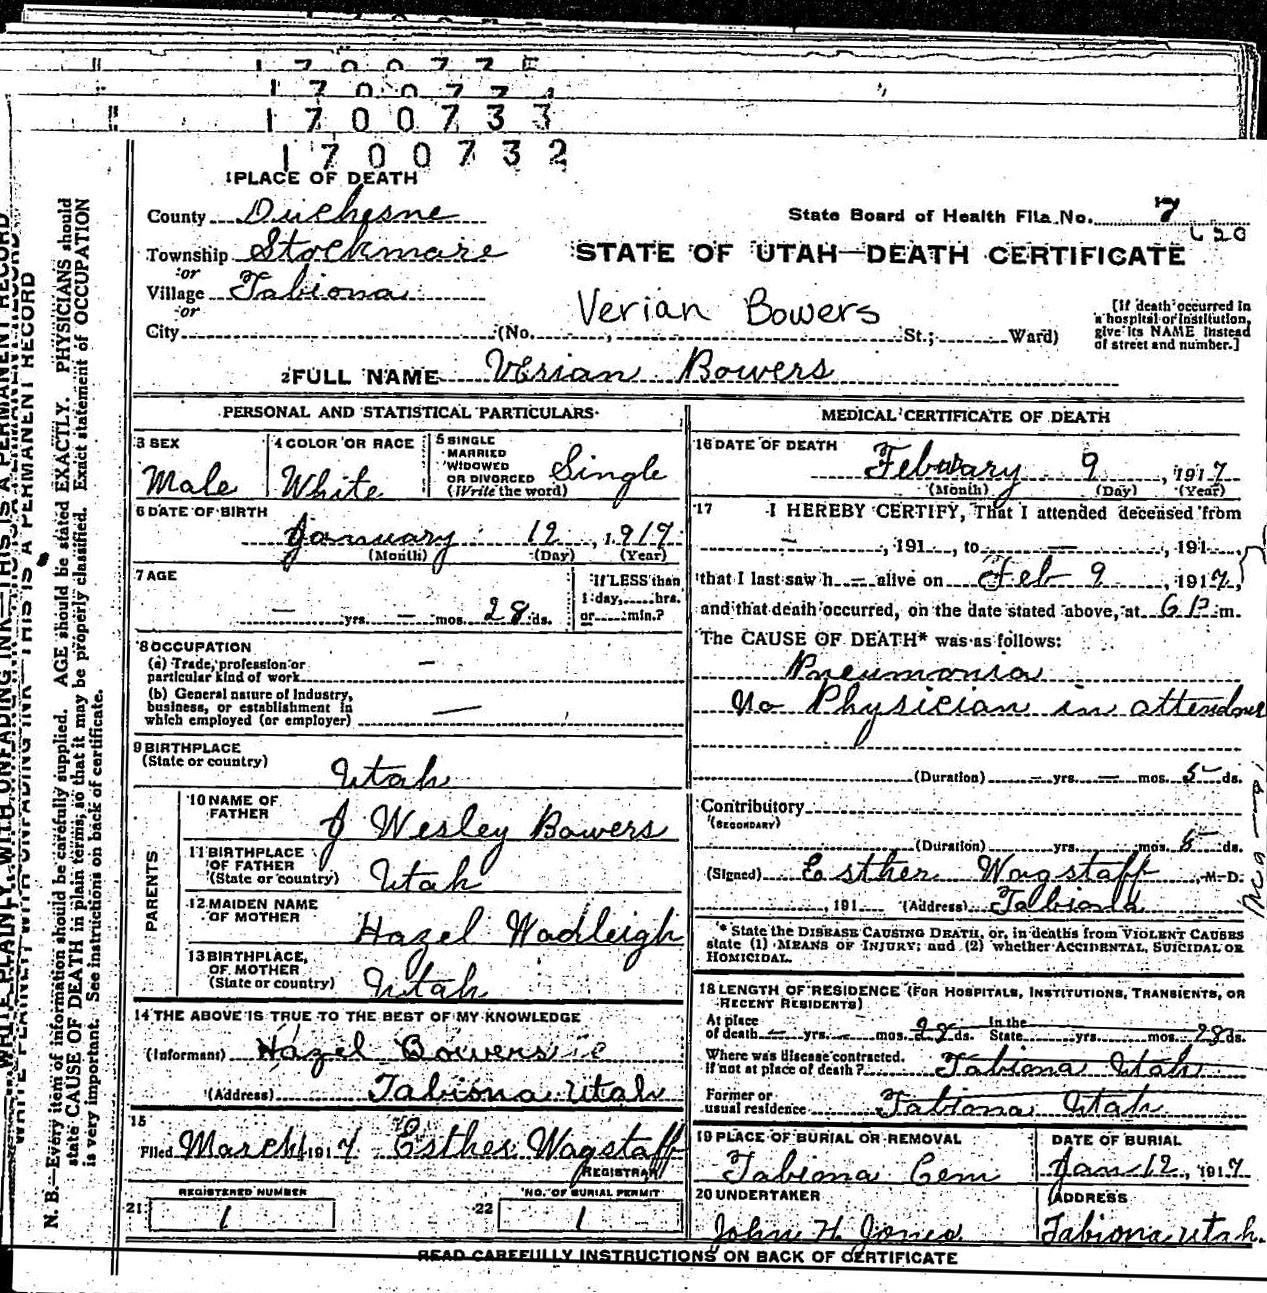 1700733
1700732
1 PLACE OF DEATH
County Duchesne
State Board of Health File No. 7
620
Township Stockmore
or
STATE OF UTAH—DEATH CERTIFICATE
Village Tabiona
or
Verian Bowers
[If death occurred in a hospital or institution, give its NAME instead of street and number.]
City (No. , St.; Ward)
2 FULL NAME Verian Bowers
PERSONAL AND STATISTICAL PARTICULARS
3 SEX
Male
4 COLOR OR RACE
White
5 SINGLE
MARRIED
WIDOWED
OR DIVORCED
(Write the word)
Single
6 DATE OF BIRTH
January 12, 1917
(Month) (Day) (Year)
7 AGE
— yrs. — mos. 28 ds.
If LESS than
1 day, hrs.
or min.?
8 OCCUPATION
(a) Trade, profession or
particular kind of work —
(b) General nature of Industry,
business, or establishment in
which employed (or employer) —
9 BIRTHPLACE
(State or country)
Utah
PARENTS
10 NAME OF
FATHER
J Wesley Bowers
11 BIRTHPLACE
OF FATHER
(State or country)
Utah
12 MAIDEN NAME
OF MOTHER
Hazel Wadleigh
13 BIRTHPLACE,
OF MOTHER
(State or country)
Utah
14 THE ABOVE IS TRUE TO THE BEST OF MY KNOWLEDGE
(Informant) Hazel Bowers
(Address) Tabiona Utah
15
Filed March 1 1917 Esther Wagstaff
REGISTRAR
REGISTERED NUMBER
21 1
NO. OF BURIAL PERMIT
22 1
MEDICAL CERTIFICATE OF DEATH
16 DATE OF DEATH
February 9, 1917
(Month) (Day) (Year)
17 I HEREBY CERTIFY, That I attended deceased from
—, 191 , to —, 191
that I last saw h — alive on Feb 9, 1917,
and that death occurred, on the date stated above, at 6 P. m.
The CAUSE OF DEATH* was as follows:
Pneumonia
No Physician in attendance
(Duration) — yrs. — mos. 5 ds.
Contributory
(SECONDARY)
(Duration) yrs. mos. 5 ds.
(Signed) Esther Wagstaff, M-D.
, 191 (Address) Tabiona
* State the DISEASE CAUSING DEATH, or, in deaths from VIOLENT CAUSES
state (1) MEANS OF INJURY; and (2) whether ACCIDENTAL, SUICIDAL OR
HOMICIDAL.
18 LENGTH OF RESIDENCE (FOR HOSPITALS, INSTITUTIONS, TRANSIENTS, OR
RECENT RESIDENTS)
At place
of death — yrs. — mos. 28 ds. In the
State yrs. mos. 28 ds.
Where was disease contracted,
if not at place of death? Tabiona Utah
Former or
usual residence Tabiona Utah
19 PLACE OF BURIAL OR REMOVAL
Tabiona Cem
DATE OF BURIAL
Jan 12, 1917
20 UNDERTAKER
John H. Jones
ADDRESS
Tabiona Utah.
READ CAREFULLY INSTRUCTIONS ON BACK OF CERTIFICATE
WRITE PLAINLY WITH UNFADING INK—THIS IS A PERMANENT RECORD
N. B.—Every item of information should be carefully supplied. AGE should be stated EXACTLY. PHYSICIANS should
state CAUSE OF DEATH in plain terms, so that it may be properly classified. Exact statement of OCCUPATION
is very important. See instructions on back of certificate.